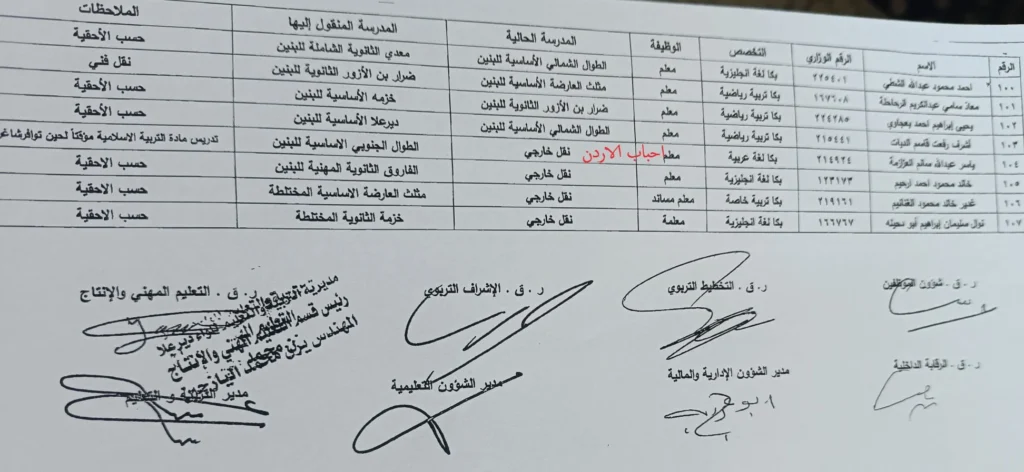 الرقم الاسم الرقم الوزاري التخصص الوظيفة المدرسة الحالية المدرسة المنقول إليها الملاحظات
١٠٠ احمد محمود عبدالله الشطي ٢٢٥٤٠١ بكا لغة انجليزية معلم الطوال الشمالي الأساسية للبنين معدي الثانوية الشاملة للبنين حسب الأحقية
١٠١ معاذ سامي عبدالكريم الرحاحلة ١٦٧٦٠٨ بكا تربية رياضية معلم مثلث العارضة الأساسية للبنين ضرار بن الأزور الثانوية للبنين نقل فني
١٠٢ يحيى إبراهيم احمد بعجاوي ٢٢٤٢٨٥ بكا تربية رياضية معلم ضرار بن الأزور الثانوية للبنين خزمه الأساسية للبنين حسب الأحقية
١٠٣ أشرف رفعت قاسم الديات ٢١٥٤٤١ بكا تربية رياضية معلم الطوال الشمالي الأساسية للبنين ديرعلا الأساسية للبنين حسب الأحقية
١٠٤ ياسر عبدالله سالم العزازمة ٢١٤٩٢٤ بكا لغة عربية معلم نقل خارجي الطوال الجنوبي الاساسية للبنين تدريس مادة التربية الاسلامية مؤقتاً لحين توافر شاغر
احباب الاردن
١٠٥ خالد محمود احمد ارحيم ١٢٣١٧٣ بكا لغة انجليزية معلم نقل خارجي الفاروق الثانوية المهنية للبنين حسب الاحقية
١٠٦ غدير خالد محمود الغنانيم ٢١٩١٦١ بكا تربية خاصة معلم مساند نقل خارجي مثلث العارضة الاساسية المختلطة حسب الاحقية
١٠٧ نوال سليمان إبراهيم أبو سحينه ١٦٦٧٦٧ بكا لغة انجليزية معلمة نقل خارجي خزمة الثانوية المختلطة حسب الاحقية
ر . ق . شؤون الموظفين ر . ق . التخطيط التربوي ر . ق . الإشراف التربوي ر . ق . التعليم المهني والإنتاج
مديرية التربية والتعليم للواء ديرعلا
رئيس قسم التعليم المهني والإنتاج
المهندس يزن محمد
ر . ق . الرقابة الداخلية مدير الشؤون الإدارية والمالية مدير الشؤون التعليمية مدير التربية و التعليم